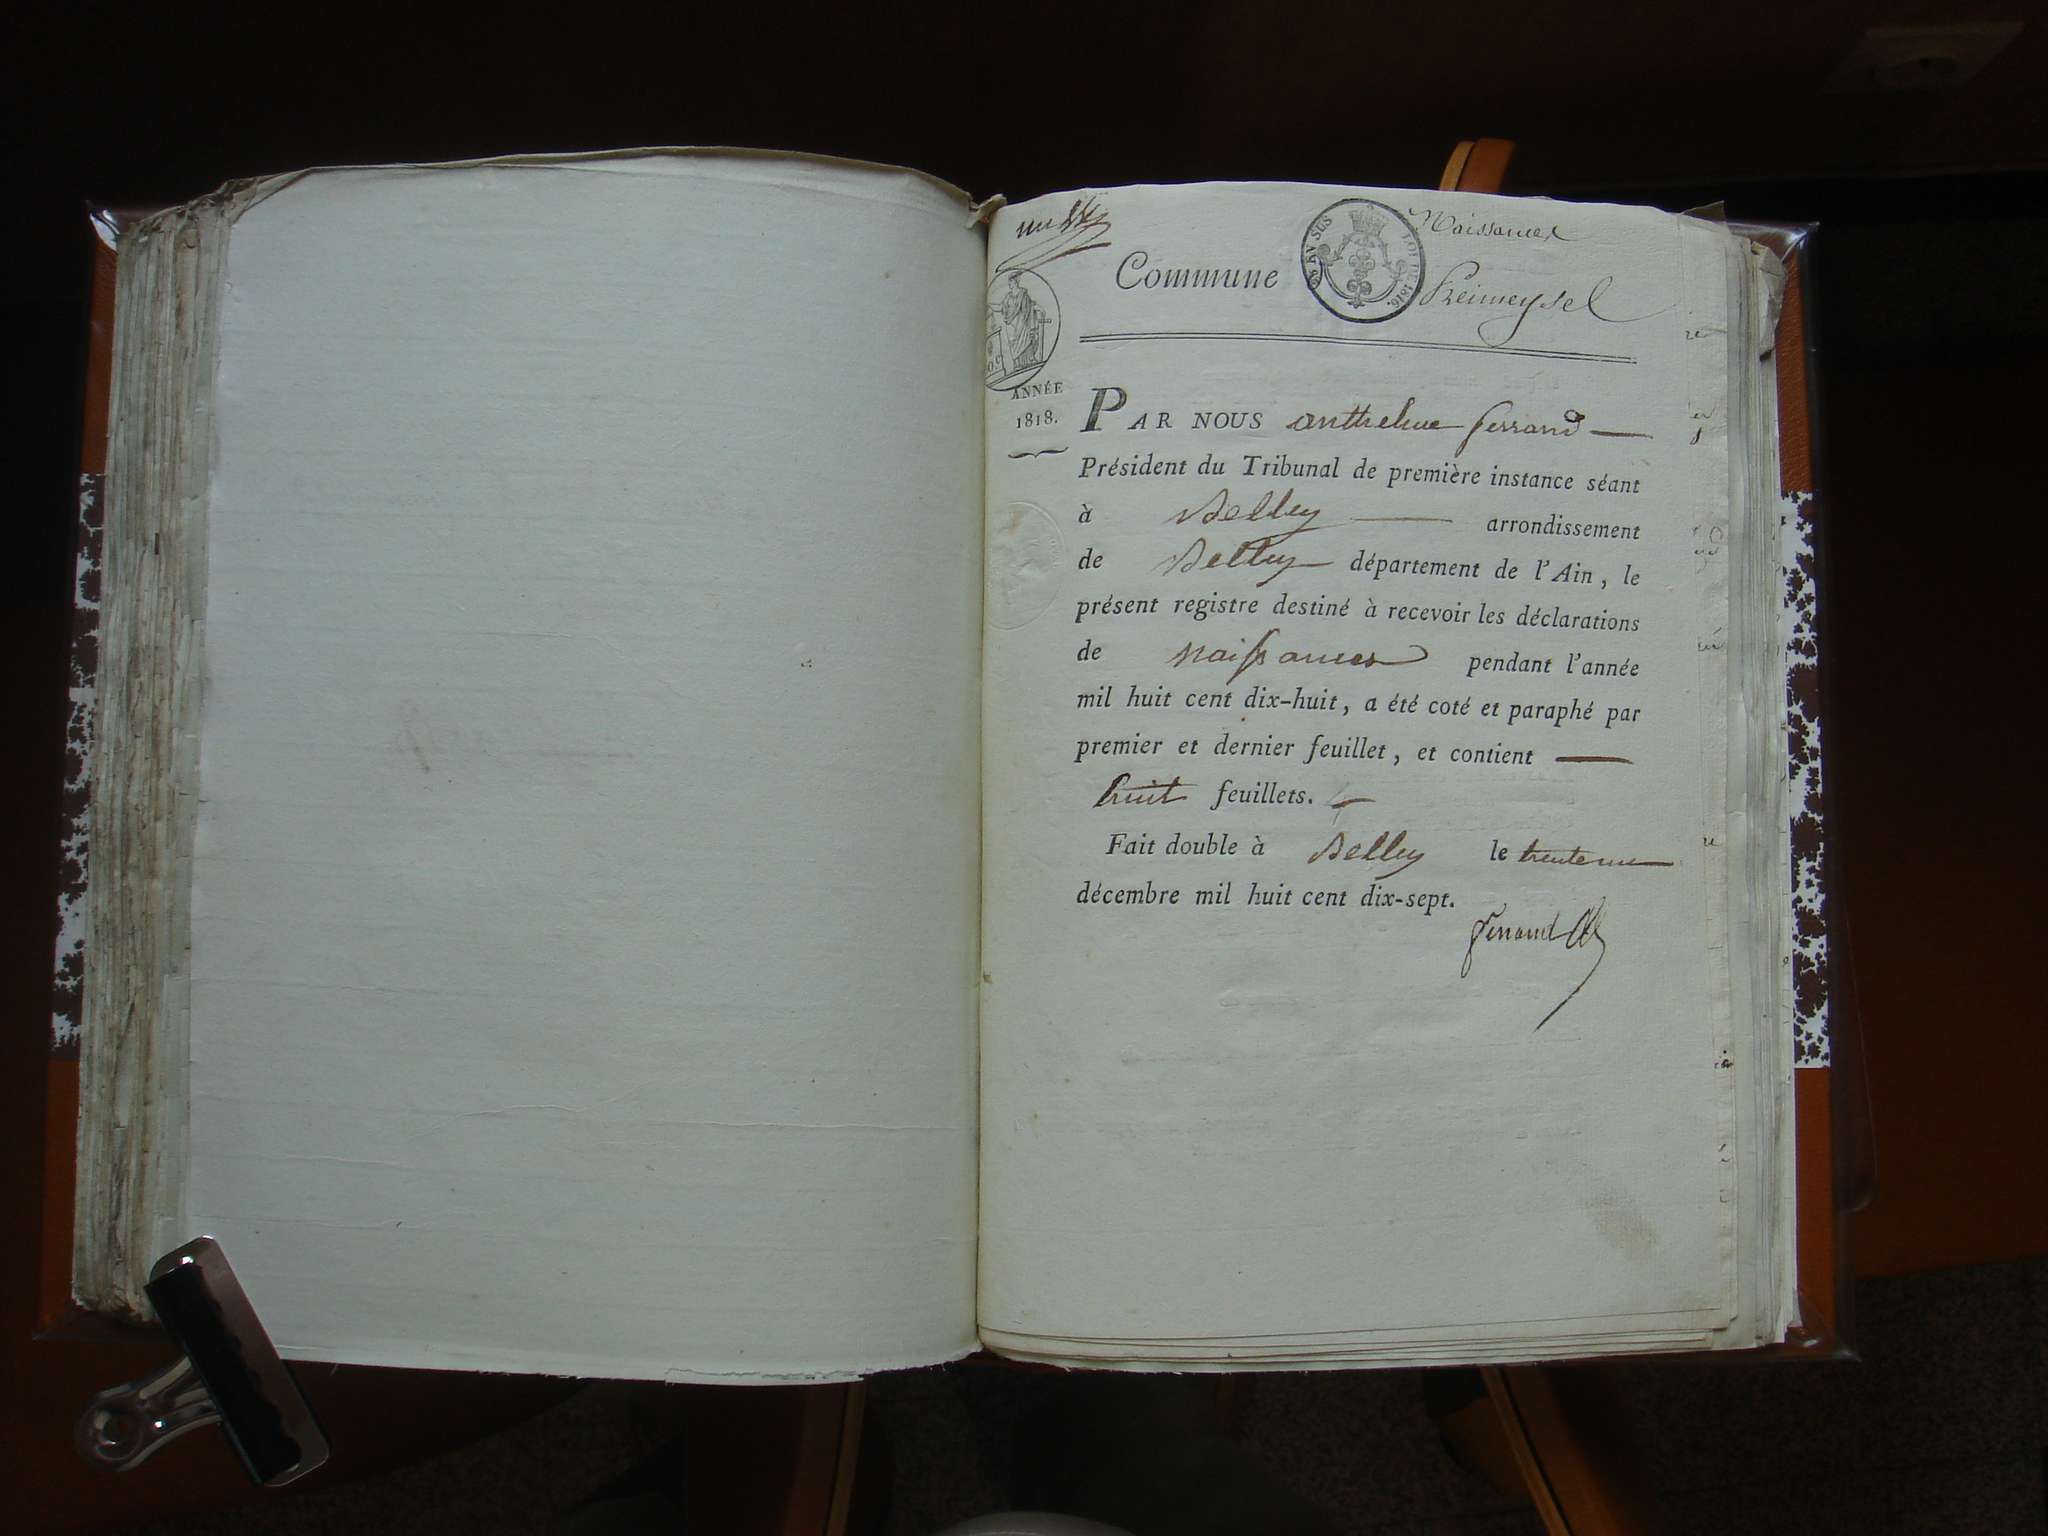 Naissances
Commune
Preimeysel
EN SUS
LOI DE 1816.
ANNÉE
1818.
PAR NOUS anthelme ferrand
Président du Tribunal de première instance séant
à Belley arrondissement
de Belley département de l'Ain, le
présent registre destiné à recevoir les déclarations
de naissances pendant l'année
mil huit cent dix-huit, a été coté et paraphé par
premier et dernier feuillet, et contient
huit feuillets.
Fait double à Belley le trente un
décembre mil huit cent dix-sept.
ferrand